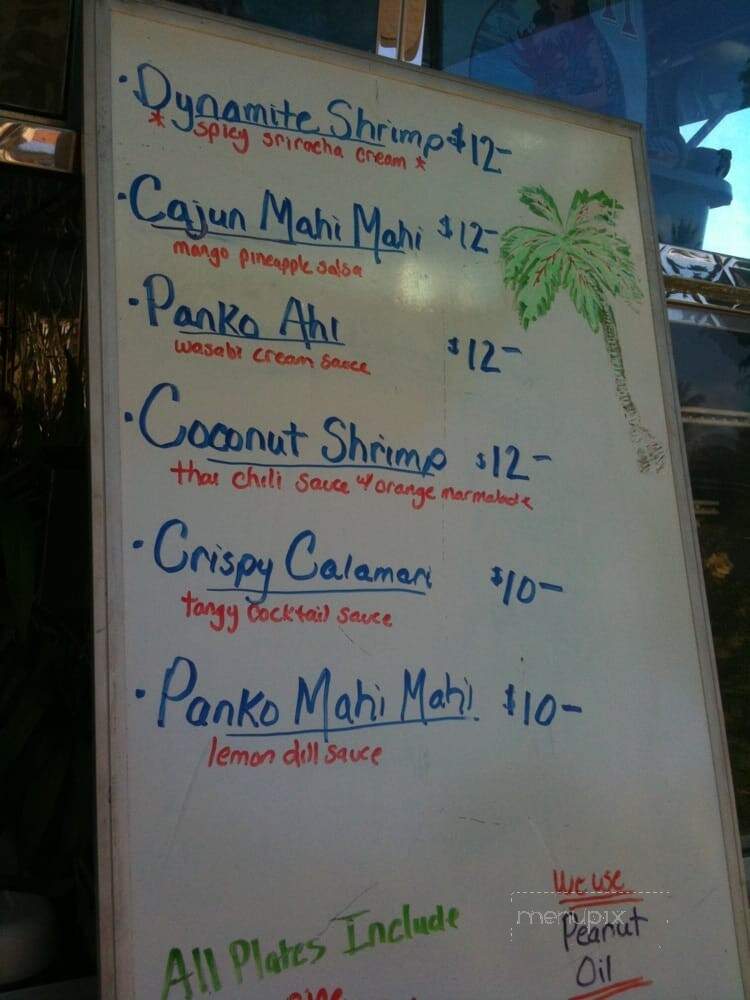 · Dynamite Shrimp $12-
* spicy sriracha cream *
· Cajun Mahi Mahi $12-
mango pineapple salsa
· Panko Ahi $12-
wasabi cream sauce
· Coconut Shrimp $12-
thai chili sauce w/ orange marmalade
· Crispy Calamari $10-
tangy cocktail sauce
· Panko Mahi Mahi $10-
lemon dill sauce
All Plates Include
We use
Peanut
Oil
menupix